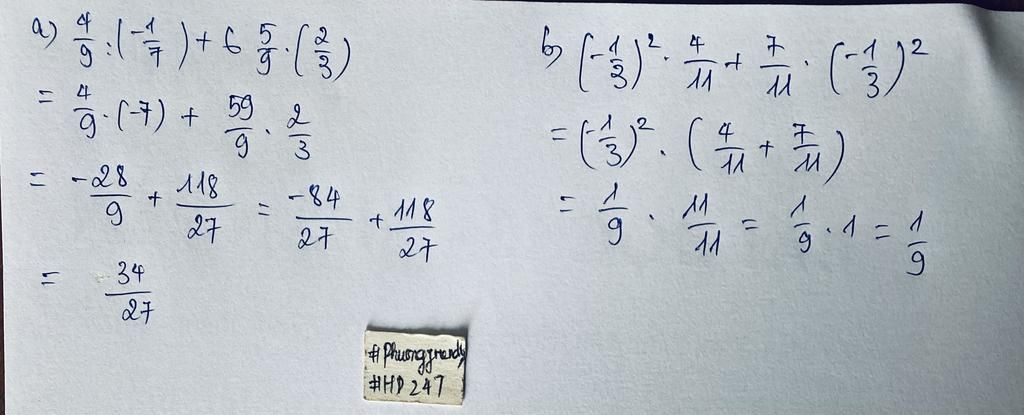 a) 4/9 : (-1/7) + 6 5/9 . (2/3)
= 4/9 . (-7) + 59/9 . 2/3
= -28/9 + 118/27 = -84/27 + 118/27
= 34/27
b) (-1/3)² . 4/11 + 7/11 . (-1/3)²
= (-1/3)² . (4/11 + 7/11)
= 1/9 . 11/11 = 1/9 . 1 = 1/9
#HD247